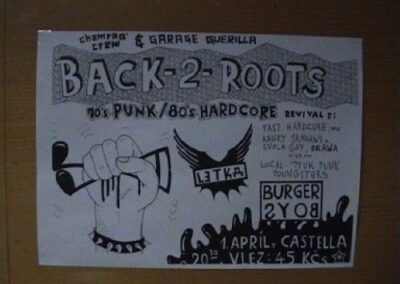 champaq' crew & GARAGE GUERILLA
BACK-2-ROOTS
70's PUNK/80's HARDCORE REVIVALS:
FAST HARDCORE
ANGRY SAMOANS &
ENOLA GAY, OKAWA
-VS-
LOCAL '77 UK PUNK
YOUNGSTERS
LETKA
BURGER
BOYS
1. APRÍL, CASTELLA
20³⁰ VLEZ: 45 KčS